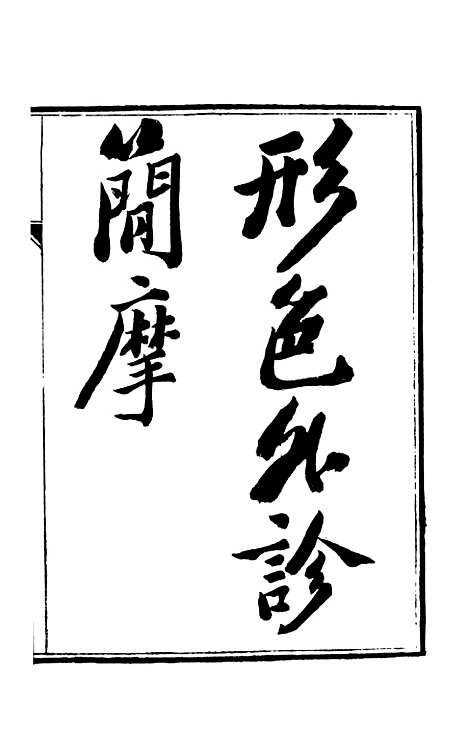 形色外診
簡摩